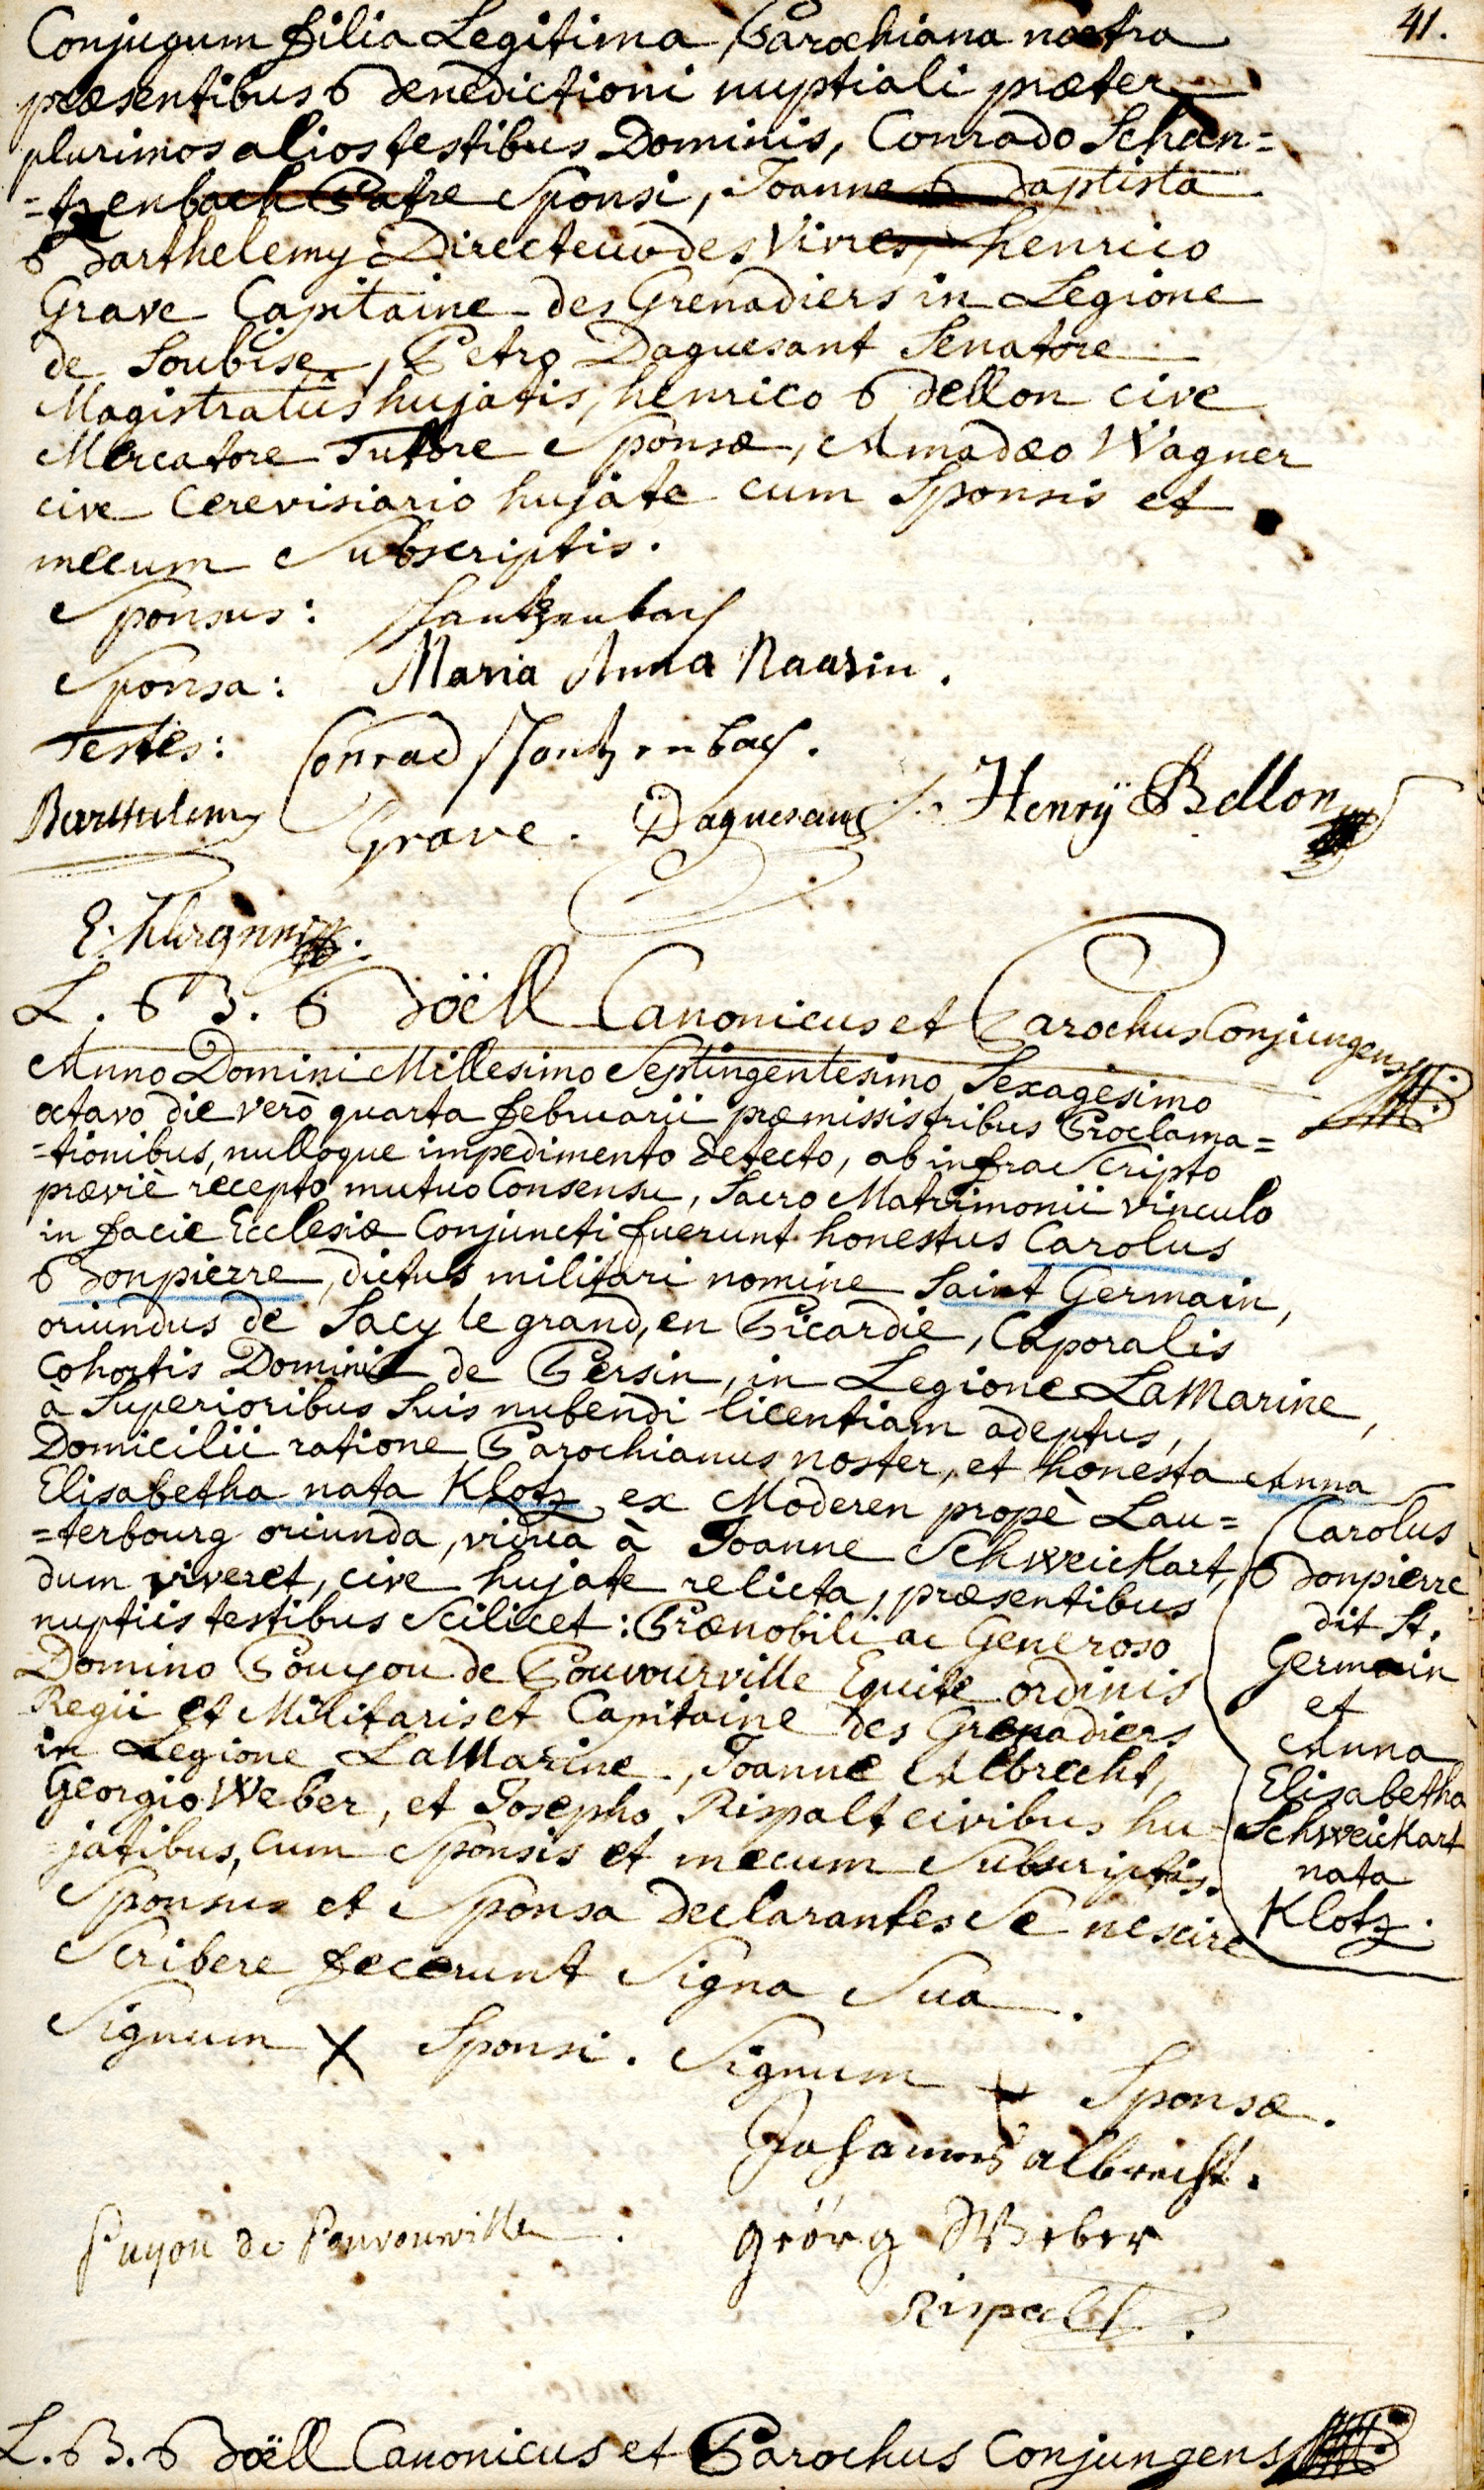 41.
Conjugum filia Legitima, Parochiana nostra
præsentibus Benedictioni nuptiali præter
plurimos alios testibus Dominis, Conrado Schan=
=tzenbach Patre Sponsi, Joanne Baptista
Barthelemy Directeur des Vivres, henrico
Grave Capitaine des Grenadiers in Legione
de Soubise, Petro Daguesant Senatore
Magistratûs hujatis, henrico Bellon cive
Mercatore Tutore Sponsæ, Amadæo Wagner
cive Cerevisiario hujate cum Sponsis et
mecum Subscriptis.
Sponsus: Schantzenbach
Sponsa: Maria Anna Naasin.
Testes: Conrad Schantzenbach.
Barthelemy Grave. Daguesant Henrÿ Bellon
L. B. Boëll Canonicus et Parochus Conjungens
Anno Domini Millesimo Septingentesimo Sexagesimo
octavo die verò quarta februarii præmissis tribus Proclama=
=tionibus, nulloque impedimento detecto, ab infra Scripto
præviè recepto mutuo Consensu, Sacro Matrimonii vinculo
in facie Ecclesiæ Conjuncti fuerunt honestus Carolus
Bonpierre, dictus militari nomine Saint Germain,
oriundus de Sacy le grand, en Picardie, Caporalis
Cohortis Domini de Persin, in Legione La Marine,
à Superioribus Suis nubendi licentiam adeptus,
Domicilii ratione Parochianus noster, et honesta Anna
Elisabetha nata Klotz ex Moderen propè Lau=
=terbourg oriunda, vidua à Joanne Schweickart,
dum viveret, cive hujate relicta, præsentibus
nuptiis testibus Scilicet: Prænobili ac Generoso
Domino Pouyou de Pouvourville Equite ordinis
Regii et Militaris et Capitaine des Grenadiers
in Legione La Marine, Joanne Albrecht,
Georgio Weber, et Josepho Rispalt civibus hu
jatibus, cum Sponsis et mecum Subscriptis.
Sponsus et Sponsa declarantes Se nescire
Scribere fecerunt Signa Sua.
Carolus
Bonpierre
dit St.
Germain
et
Anna
Elisabetha
Schweickart
nata
Klotz.
Signum X Sponsi. Signum + Sponsæ.
Johannes albrecht.
Puyou de Pouvourville. Geörg Weber
Rispalt.
L. B. Boëll Canonicus et Parochus Conjungens